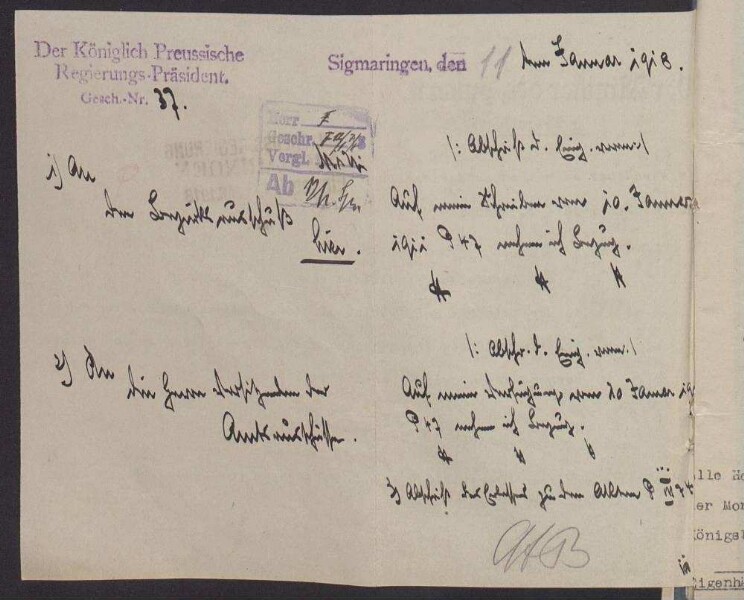 Der Königlich Preussische
Regierungs-Präsident.
Gesch.-Nr. 37.
Sigmaringen, den 11 ten Januar 1918.
Herr I
Geschr.
Vergl.
Ab
1) An
den Bezirksausschuß
hier.
/: Abschrift d. Eing. vorn :/
Auf mein Schreiben vom 10. Januar
1911 P 47 nehme ich Bezug.
2) An
die Herren Vorsitzenden der
Amtsausschüsse.
/: Abschr. d. Eing. vorn :/
Auf meine Verfügung vom 20 Januar 19
P 47 nehme ich Bezug.
3) Abschrift des Erlasses zu den Akten P
lle
er Mon
önigs
igenhä